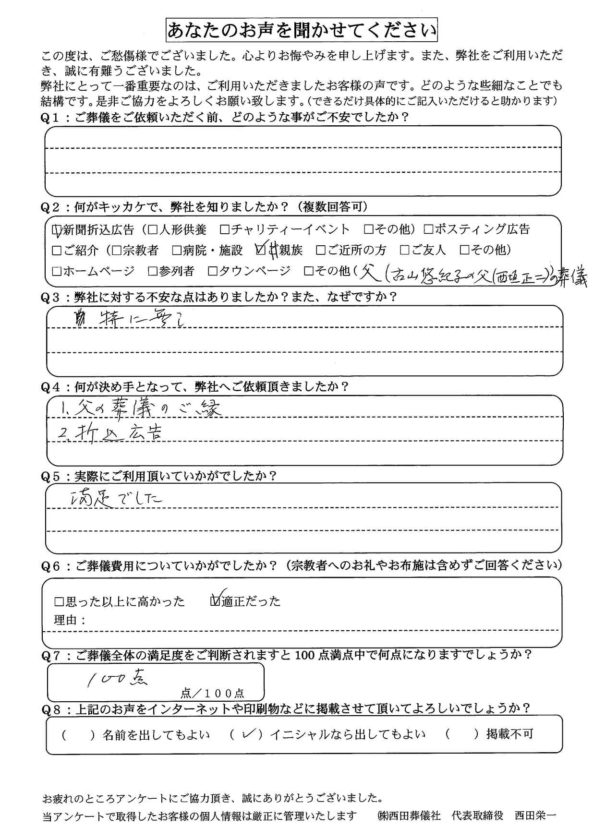 あなたのお声を聞かせてください
この度は、ご愁傷様でございました。心よりお悔やみを申し上げます。また、弊社をご利用いただ
き、誠に有難うございました。
弊社にとって一番重要なのは、ご利用いただきましたお客様の声です。どのような些細なことでも
結構です。是非ご協力をよろしくお願い致します。(できるだけ具体的にご記入いただけると助かります)
Q1：ご葬儀をご依頼いただく前、どのような事がご不安でしたか？
Q2：何がキッカケで、弊社を知りましたか？（複数回答可）
☑新聞折込広告（□人形供養　□チャリティーイベント　□その他）□ポスティング広告
□ご紹介（□宗教者　□病院・施設　☑親族　□ご近所の方　□ご友人　□その他）
□ホームページ　□参列者　□タウンページ　□その他（父（古山悠紀子の父（西垣正二）の葬儀
Q3：弊社に対する不安な点はありましたか？また、なぜですか？
特に無し
Q4：何が決め手となって、弊社へご依頼頂きましたか？
1.父の葬儀のご縁
2.折込広告
Q5：実際にご利用頂いていかがでしたか？
満足でした
Q6：ご葬儀費用についていかがでしたか？（宗教者へのお礼やお布施は含めずご回答ください）
□思った以上に高かった　☑適正だった
理由：
Q7：ご葬儀全体の満足度をご判断されますと100点満点中で何点になりますでしょうか？
100点
点／100点
Q8：上記のお声をインターネットや印刷物などに掲載させて頂いてよろしいでしょうか？
（　）名前を出してもよい　（✓）イニシャルなら出してもよい　（　）掲載不可
お疲れのところアンケートにご協力頂き、誠にありがとうございました。
当アンケートで取得したお客様の個人情報は厳正に管理いたします　㈱西田葬儀社　代表取締役　西田栄一